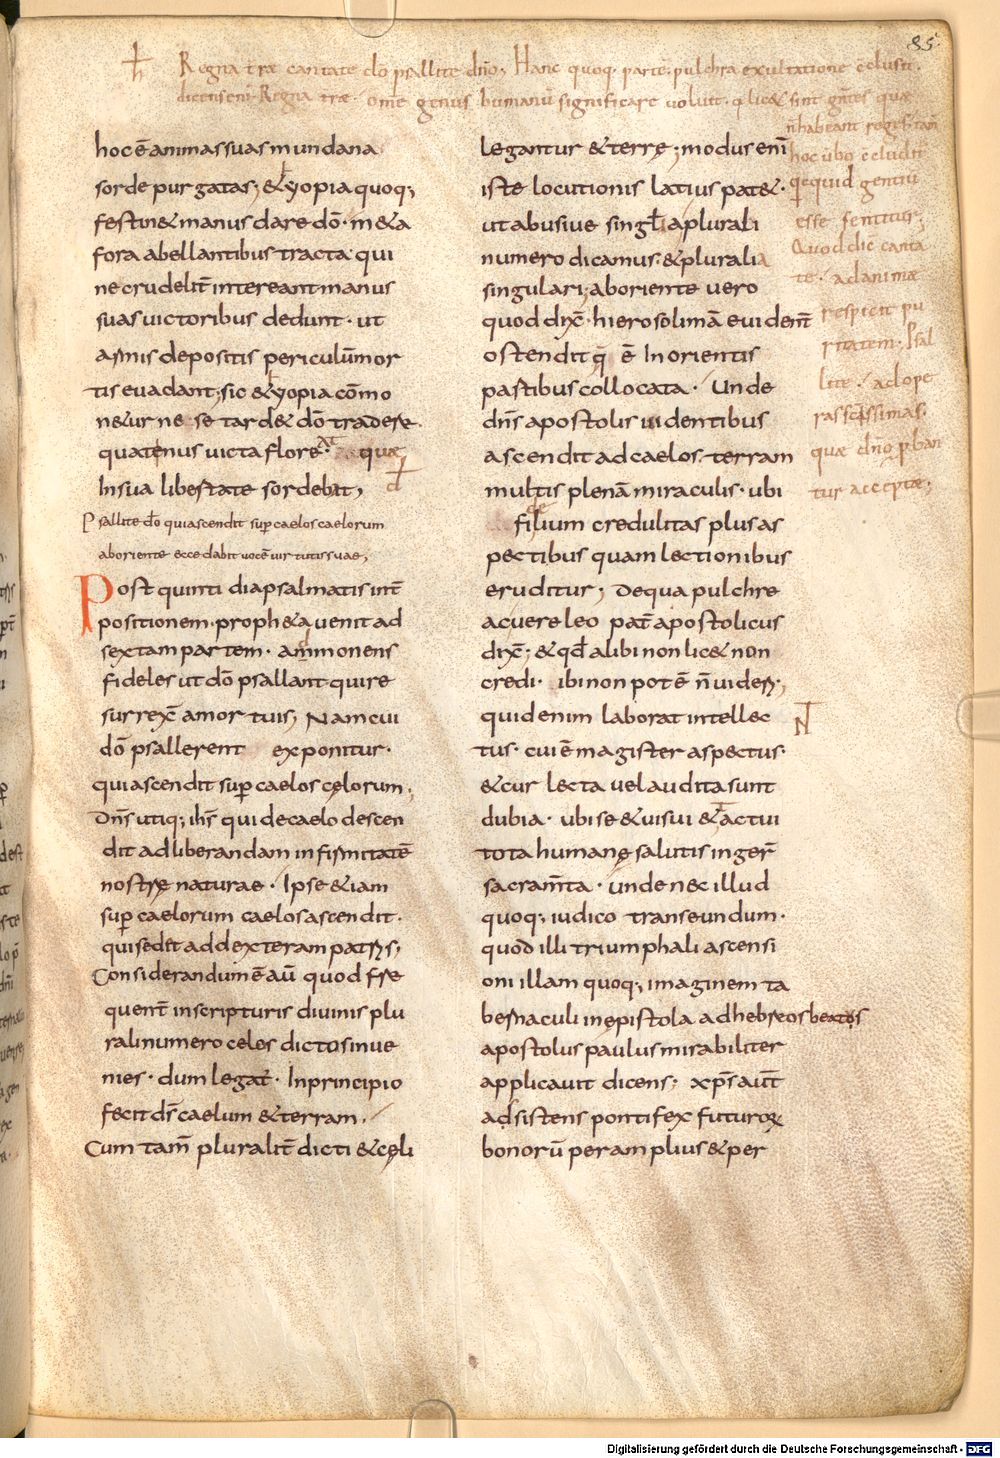 85
h Regna trae cantate dō psallite dño; Hanc quoq. partē. pulchra exultatione cclusit.
dicens enī. Regna trae. ome genus humanū significare voluit. q licet sint gntes quae
ñ habeant reges. tam
hoc ūbo ccludit
qcquid gentiū
esse sentitur;
Quod dic canta
te. ad animae
respicit pu
ritatem. Psal
lite. ad ope
ras scissimas.
quae dño pban
tur acceptae;
hoc ē animas suas mundana
sorde purgatas; &yopia quoq;
festin& manus dare dō. m&a
fora abellantibus tracta. qui
ne crudelit intereant manus
suas victoribus dedunt. ut
armis depositis periculū mor
tis evadant; sic &yopia cōmo
n&ur ne se tard& dō tradere.
quatenus victa floreat. quae
In sua libertate sordebat;
Psallite dō qui ascendit sup caelos caelorum
ab oriente ecce dabit vocē virtutis suae;
Post quinti diapsalmatis int
positionem. proph&a venit ad
sextam partem. ammonens
fideles ut dō psallant qui re
surrexit amor tuis; Nam cui
dō psallerent exponitur.
qui ascendit sup caelos cęlorum;
Dñs utiq; ihs qui de caelo descen
dit ad liberandam infirmitatē
nostrę naturae. Ipse &iam
sup caelorum caelos ascendit.
qui sedet ad dexteram patris;
Considerandum ē aū quod fre
quent in scripturis divinis plu
rali numero celos dictos inve
nies. dum legat. In principio
fecit ds caelum & terram.
Cum tam pluralit dicti & cęli
legantur & terrę; modus enī
iste locutionis latius pat&.
ut abusive singl a plurali
numero dicamus. & plurali a
singulari; ab oriente vero
quod dixc. hierosolimā evident
ostendit q ē In orientis
partibus collocata. Unde
dñs apostolis videntibus
ascendit ad caelos. terram
multis plenā miraculis. ubi
fidelium credulitas plus as
pectibus quam lectionibus
eruditur; De qua pulchre
ac vere leo pat apostolicus
dixc; & qd alibi non lic& non
credi. ibi non pot ē ñ videri;
quid enim laborat intellec
tus. cui ē magister aspectus.
& cur lecta vel audita sunt
dubia. ubi se & visui & tactui
tota humanę salutis inger
sacramta. Unde nec illud
quoq; iudico transeundum.
quod illi triumphali ascensi
oni illam quoq; imaginem ta
bernaculi in epistola ad hebreos beatus
apostolus paulus mirabiliter
applicavit dicens; xps aut
adsistens pontifex futurorum
bonorū per amplius & per
Digitalisierung gefördert durch die Deutsche Forschungsgemeinschaft - DFG